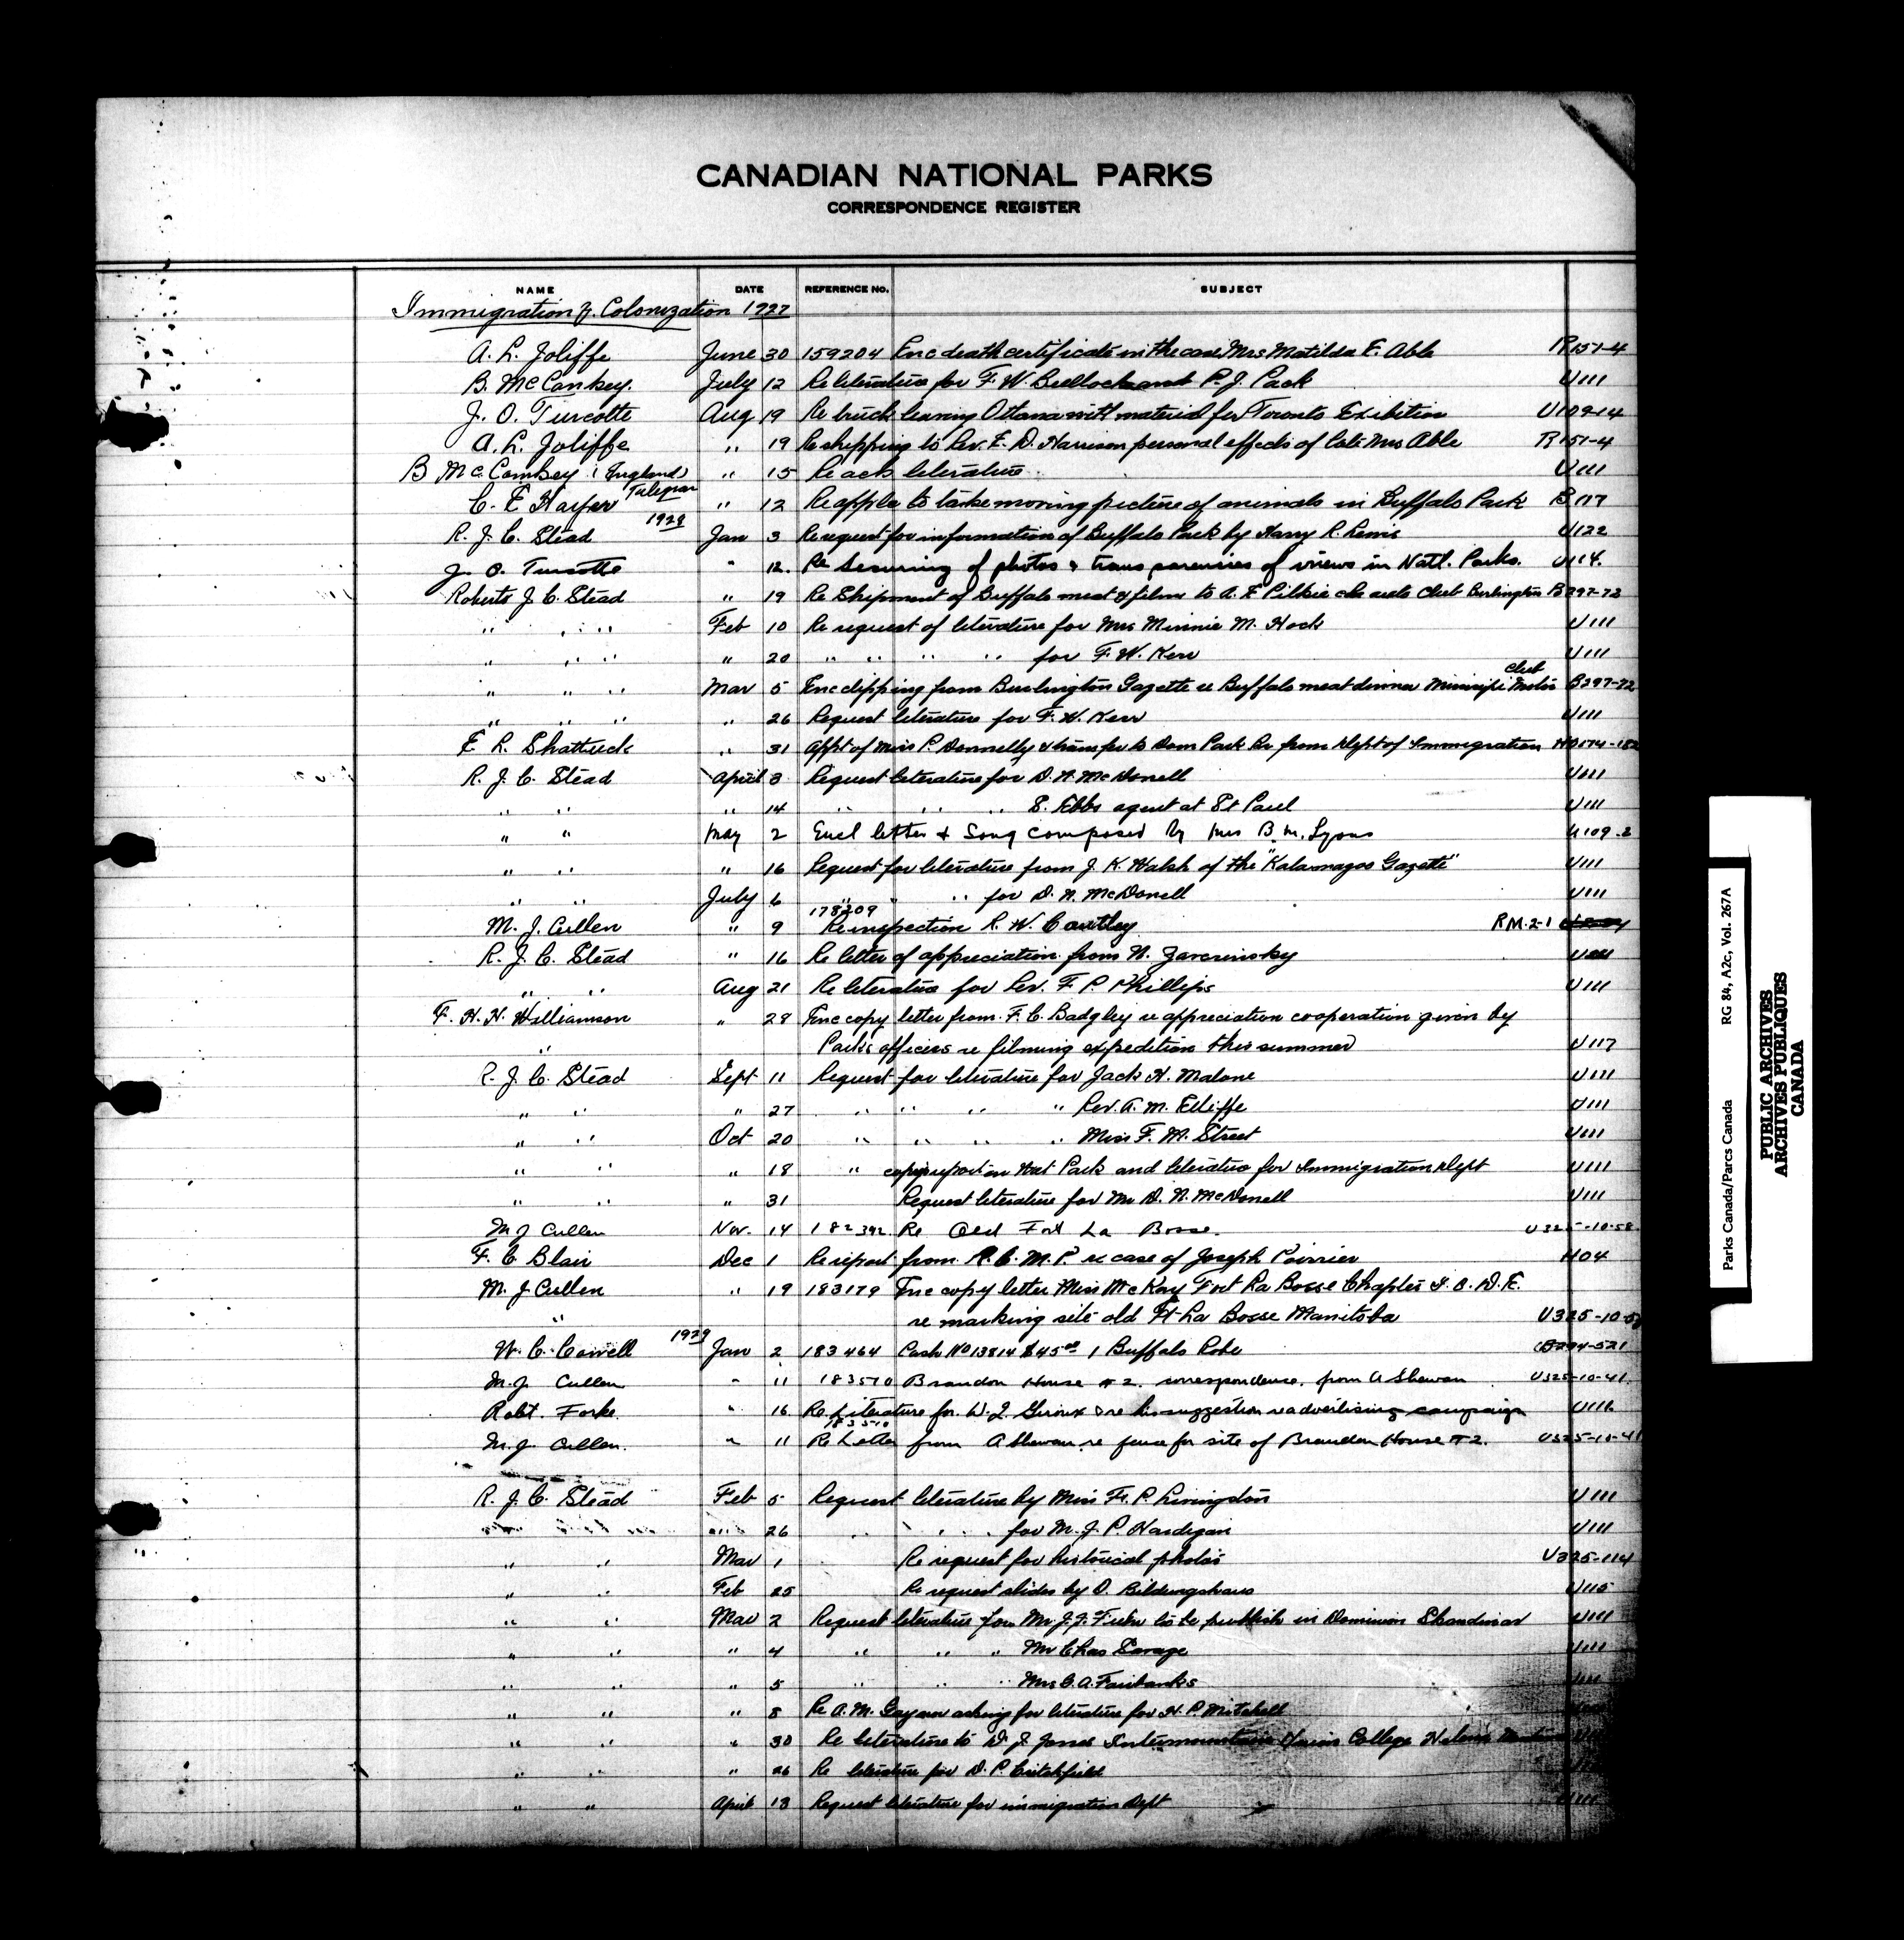 CANADIAN NATIONAL PARKS
CORRESPONDENCE REGISTER
NAME DATE REFERENCE No. SUBJECT
Immigration & Colonization 1927
A. L. Joliffe June 30 159204 Enc death certificate in the case Mrs Matilda E. Able R151-4
B. McConkey. July 12 Re literature for F. W. Bullock and P. J. Pack U111
J. O. Turcotte Aug 19 Re truck leaving Ottawa with material for Toronto Exibition U109-14
A. L. Joliffe " 19 Re shipping to Rev. E. D. Harrison personal effects of late Mrs Able R151-4
B McConkey (England) " 15 Re ack literature U111
C. E " 12 Re appln to take moving picture of animals in Buffalo Park B117
R. J. C. Stead 1928 Jan 3 Re request for information of Buffalo Park by Harry R. Lewis U122
J. O. Turcotte " 12. Re Securing of photos & transparencies of views in Natl. Parks. U114.
Roberts J. C. Stead " 19 Re Shipment of Buffalo meat & films to A. E Pilkie Club Burlington B297-72
" " " Feb 10 Re request of literature for Mrs Minnie M. Hock U111
" " " " 20 " " " " for F. W. Kerr U111
" " " Mar 5 Enc clipping from Burlington Gazette re Buffalo meat dinner Club B297-72
" " " " 26 Request literature for F. W. Kerr U111
E L. Shattuck " 31 Appt of Miss P. Donnelly & transfer to Dom Park Br from Dept of Immigration
R. J. C. Stead April 3 Request literature for D. N. McDonell U111
" " " 14 " " " S. Ebbs agent at St Paul U111
" " May 2 Encl letter & Song composed by Mrs B. M. Lyons U109-2
" " " 16 Request for literature from J. K. Walsh of the "Kalamazoo Gazette" U111
" " July 6 " " for D. N. McDonell U111
178209
M. J. Cullen " 9 Re inspection R. W. Cautley RM.2-1
R. J. C. Stead " 16 Re letter of appreciation from N. U111
" " Aug 21 Re literature for Rev. F. P. Phillips U111
F. H. H. Williamson " 28 Enc copy letter from F. C. Badgley re appreciation cooperation given by
" Parks officers re filming expedition this summer U117
R. J. C. Stead Sept 11 Request for literature for Jack H. Malone U111
" " " 27 " " " " Rev. A. M. Elliffe U111
" " Oct 20 " " " " Miss F. M. Street U111
" " " 18 " copy report on Nat Park and literature for Immigration Dept U111
" " " 31 Request literature for Mr D. N. McDonell U111
M J Cullen Nov. 14 182392 Re Old Fort La Bosse. U325-10-58
F. C Blair Dec 1 Re report from R. C. M. P. re case of Joseph Poirrier H04
M. J Cullen " 19 183179 Enc copy letter Miss McKay Fort La Bosse Chapter I. O. D. E.
" re marking site old Ft La Bosse Manitoba U325-10-58
W. C. Cowell 1929 Jan 2 183464 Cash No 13814 $45.00 1 Buffalo Robe B294-521
M. J. Cullen " 11 183510 Brandon House # 2. correspondence. from A Shewan U325-10-41.
Robt. Forke. " 16 Re Literature for W. J. Giroux & re his suggestion re advertising campaign U116
183510
M. J. Cullen. " 11 Re Letter from A Shewan re fence for site of Brandon House #2. U325-10-41
R. J. C. Stead Feb 5 Request literature by Miss F. P. Livingston U111
" 26 " " " for M. J. P. Hardigan U111
" " Mar 1 Re request for historical photos U325-114
" " Feb 25 Re request slides by O. U115
" " Mar 2 Request literature for Mr J. J. to be publish in Dominion U111
" " " 4 " " " Mr Chas Savage U111
" " " 5 " " " Mrs C. A. Fairbanks U111
" " " 8 Re A. M. Gaynor asking for literature for H. P. Mitchell
" " " 30 Re literature to D. J. Jones Intermountain Union College Helena
" " " 26 Re literature for D. P. Critchfield
" " April 13 Request literature for immigration Dept U111
Parks Canada/Parcs Canada RG 84, A2c, Vol. 267A
PUBLIC ARCHIVES
ARCHIVES PUBLIQUES
CANADA